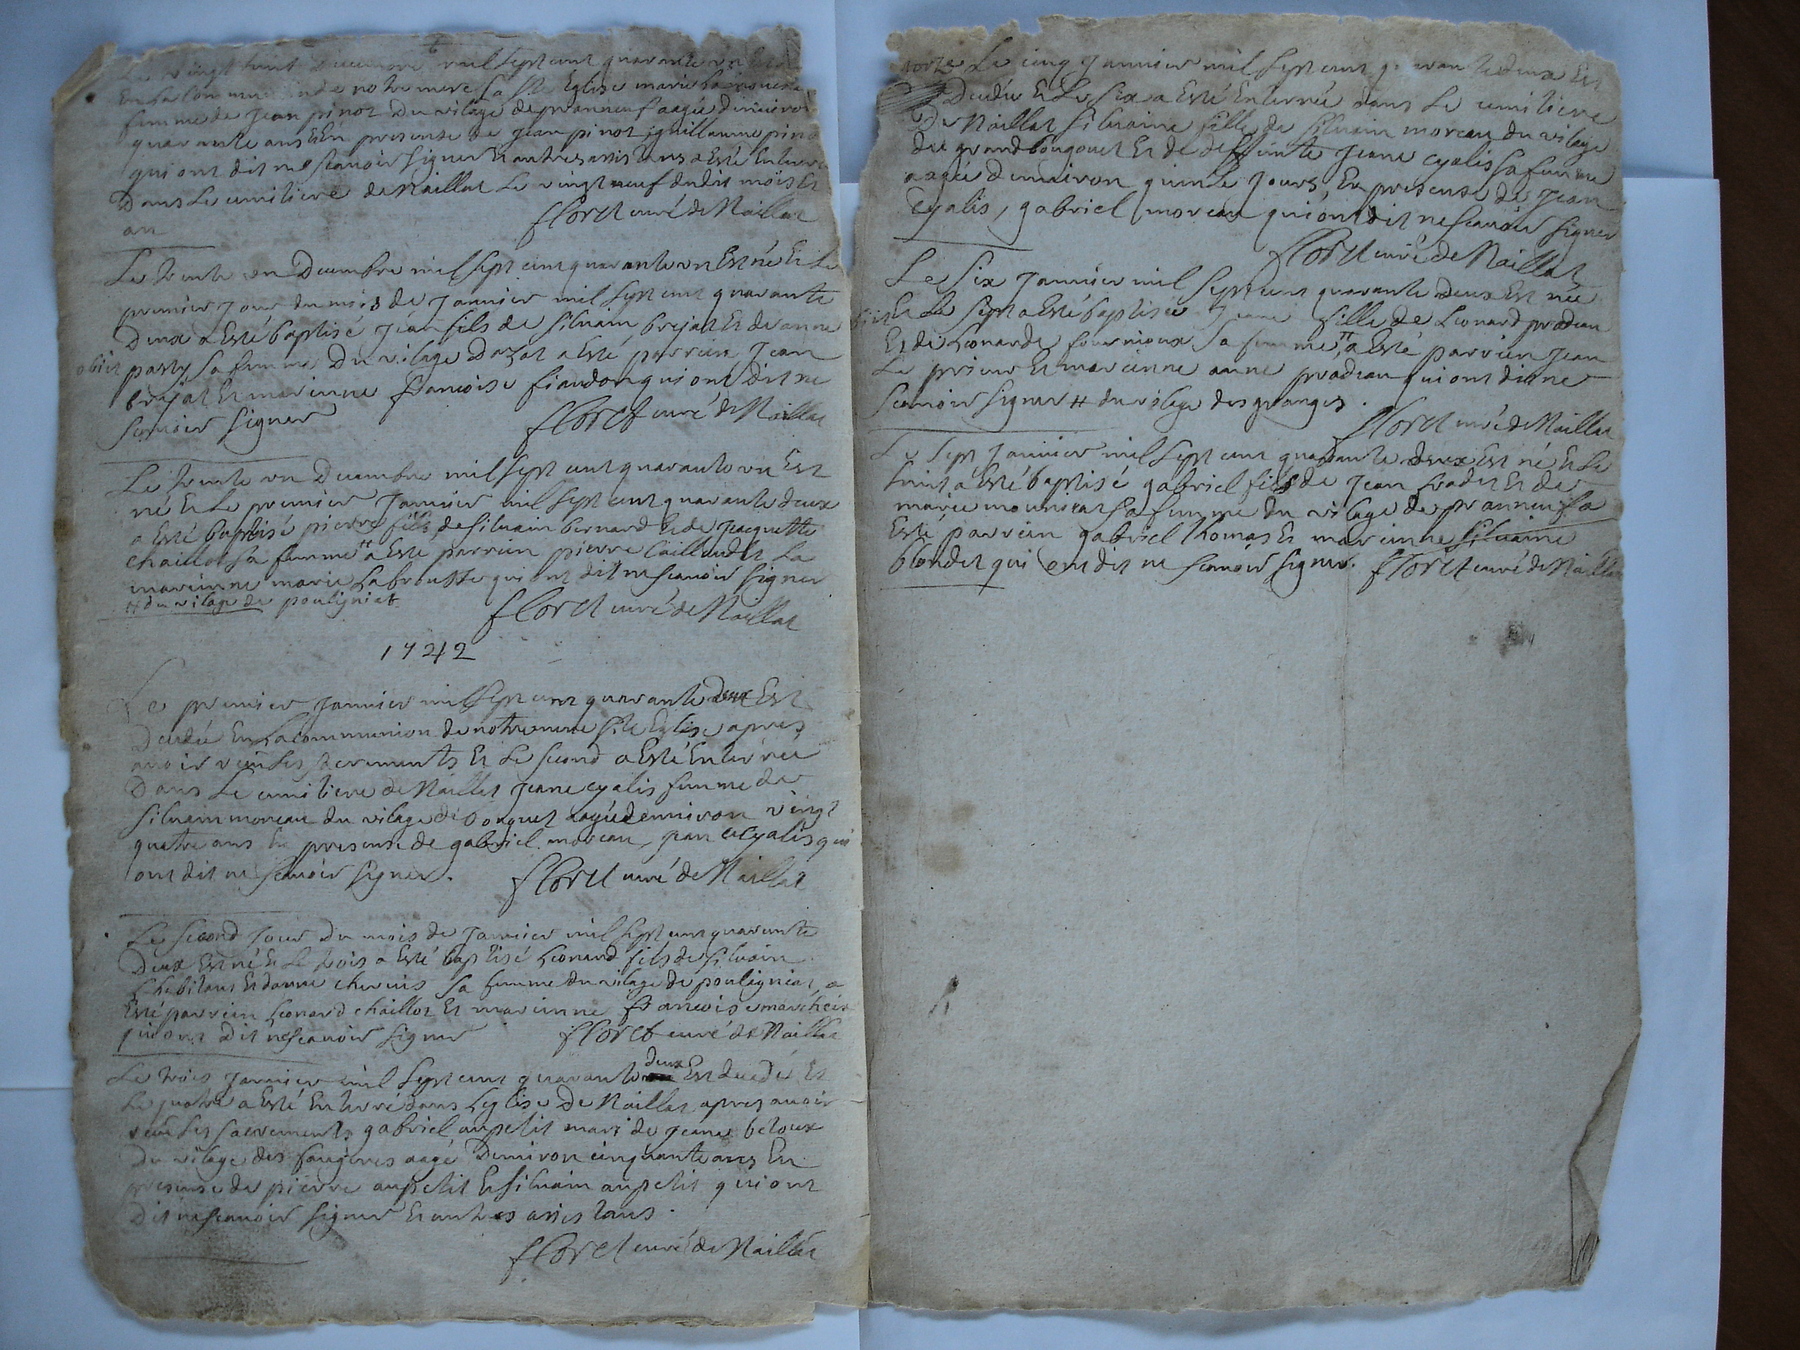 Le vingt huit decembre mil sept cent quarante un
En la communion de notre mere la Ste Eglise marie
femme de Jean pinot du vilage de pranneuf aagée denviron
quarante ans En presense de Jean pinot, guillaume pinot
qui ont dit ne scauoir signer Et autres assistans a Esté Enterrée
Dans Le cimitiere de Naillat Le vingt neuf dudit mois Et
an
floret curé de Naillat
Le trente un Decembre mil sept cent quarante un Est né Et Le
premier jour du mois de Januier mil sept cent quarante
Deux a Esté baptisé Jean fils de Siluain brejat Et de anne
obiit
pasty sa femme Du vilage Dazat a Esté parrien Jean
brejat Et marienne francoise fiandon qui ont dit ne
scauoir signer
floret curé de Naillat
Le trente un Decembre mil sept cent quarante un Est
né Et Le premier Januier mil sept cent quarante deux
a Esté baptisé pierre fils de Siluain bernard Et de Jacquette
chaillot sa femme # a Esté parrien pierre Caillaud Et La
marienne marie Labrousse qui ont dit ne scauoir signer
# du vilage de pouligniat
floret curé de Naillat
1742
Le premier Januier mil sept cent quarante Deux Est
Decedée En La communion de notre mere Ste Eglise apres
auoir receu Les sacrements Et Le second a Esté Enterrée
Dans Le cimitiere de Naillat Jeane cyalis femme de
Siluain moreau du vilage de Bouquet aagée denviron vingt
quatre ans En presense de gabriel moreau, jean cyalis qui
ont dit ne scauoir signer.
floret curé de Naillat
Le second jour du mois de Januier mil sept cent quarante
Deux Est né Et Le trois a Esté baptisé Leonard fils de Siluain
Et danne chervis sa femme du vilage de pouligniat, a
Esté parrien Leonard chaillot Et marienne francoise
qui ont Dit ne scauoir signer
floret curé de Naillat
Le trois Januier mil sept cent quarante deux Est decedé Et
Le quatre a Esté Enterré dans Leglise De Naillat apres auoir
receu Les sacrements gabriel aupetit mari de Jeane betoux
Du vilage des fougeres aagé Denviron cinquante ans En
presense de pierre aupetit Et Siluain aupetit qui ont
Dit ne scauoir signer Et autres assistans.
floret curé de Naillat
morte Le cinq Januier mil sept cent quarante deux Est
Decedée Et Le six a Esté Enterrée dans Le cimitiere
De Naillat Siluaine fille de Siluain moreau du vilage
du grand bouquet Et de deffunte Jeane cyalis sa femme
aagée denviron quinze jours, En presense de Jean
Cyalis, gabriel moreau qui ont dit ne scauoir signer
floret curé de Naillat
Le Six Januier mil sept cent quarante deux Est née
obiit
Et Le sept a Esté baptisée Jeane fille de Leonard pradeau
Et de Leonarde fournioux sa femme # a Esté parrien Jean
Le prieur Et marienne anne pradeau qui ont dit ne
scauoir signer # du vilage des granges.
floret curé de Naillat
Le sept Januier mil sept cent quarante deux Est né Et Le
huit a Esté baptisé gabriel fils de Jean fradet Et de
marie mounicat sa femme du vilage de pranneuf a
Esté parrien gabriel thomas Et marienne Siluaine
blondet qui ont dit ne scauoir signer.
floret curé de Naillat